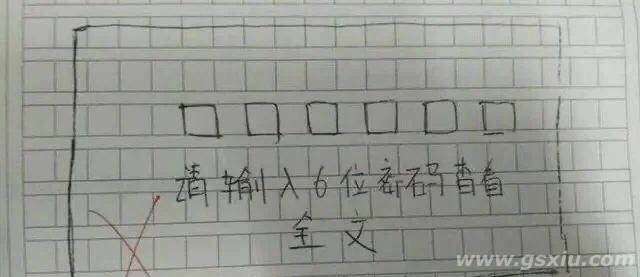 请输入6位密码查看
全文
www.gsxiu.com